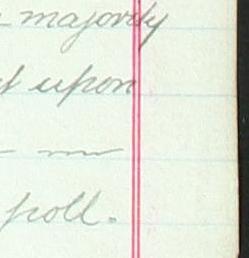 majority
upon
poll.